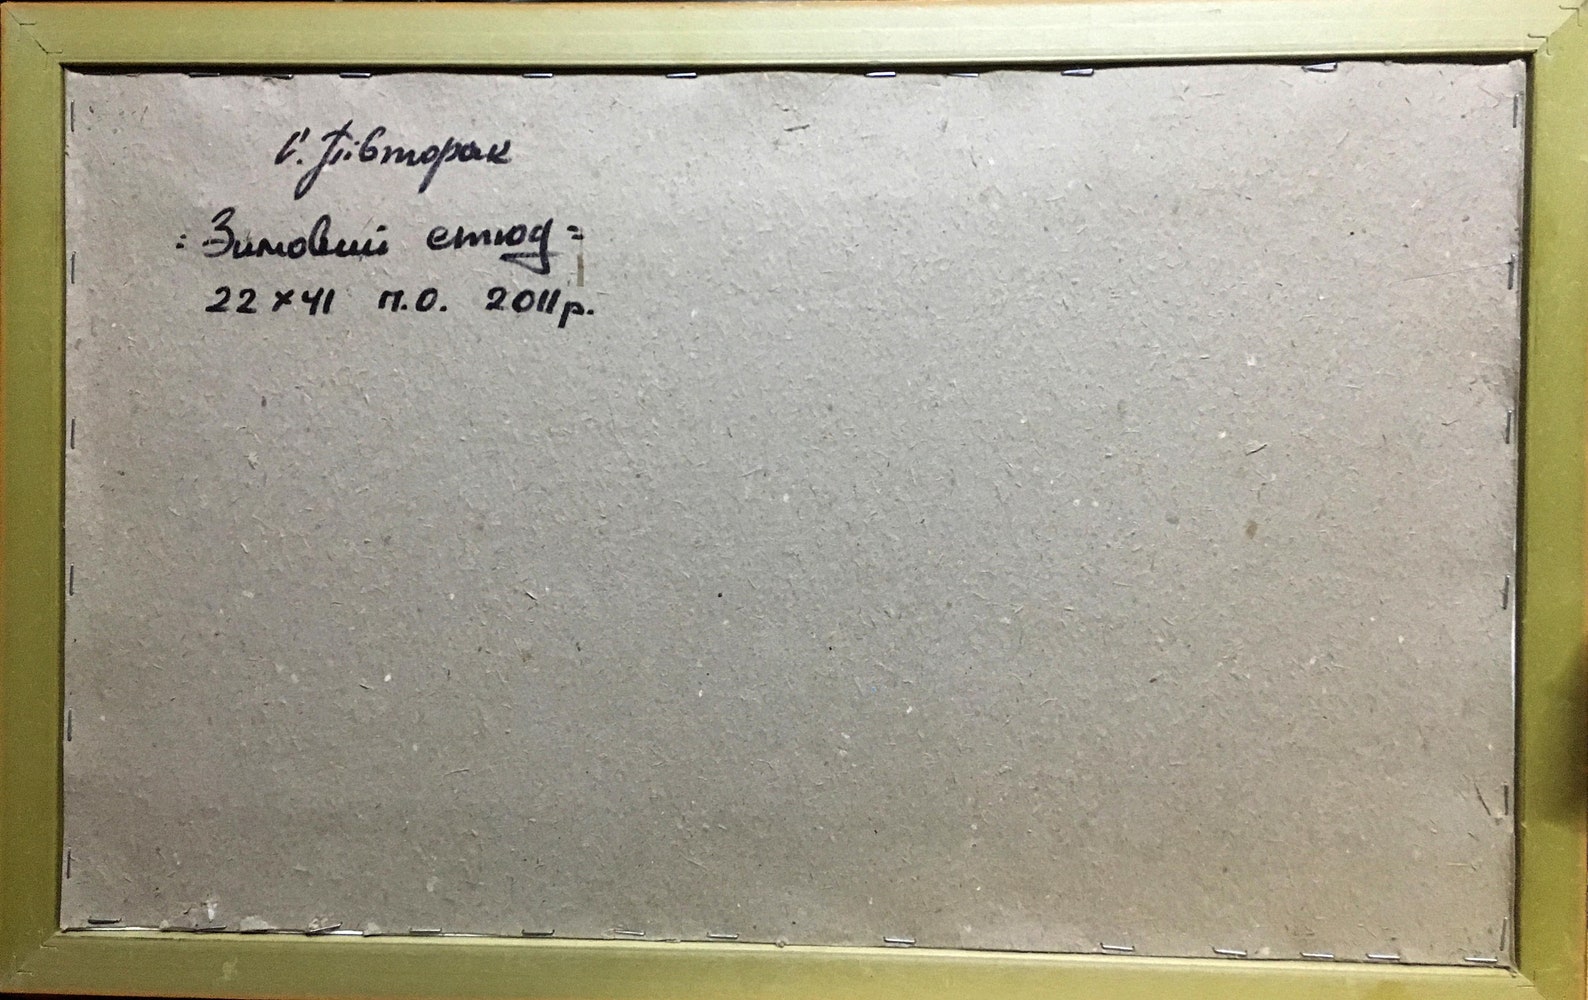 І. Півторак
"Зимовий етюд"
22 х 41 п.о. 2011р.